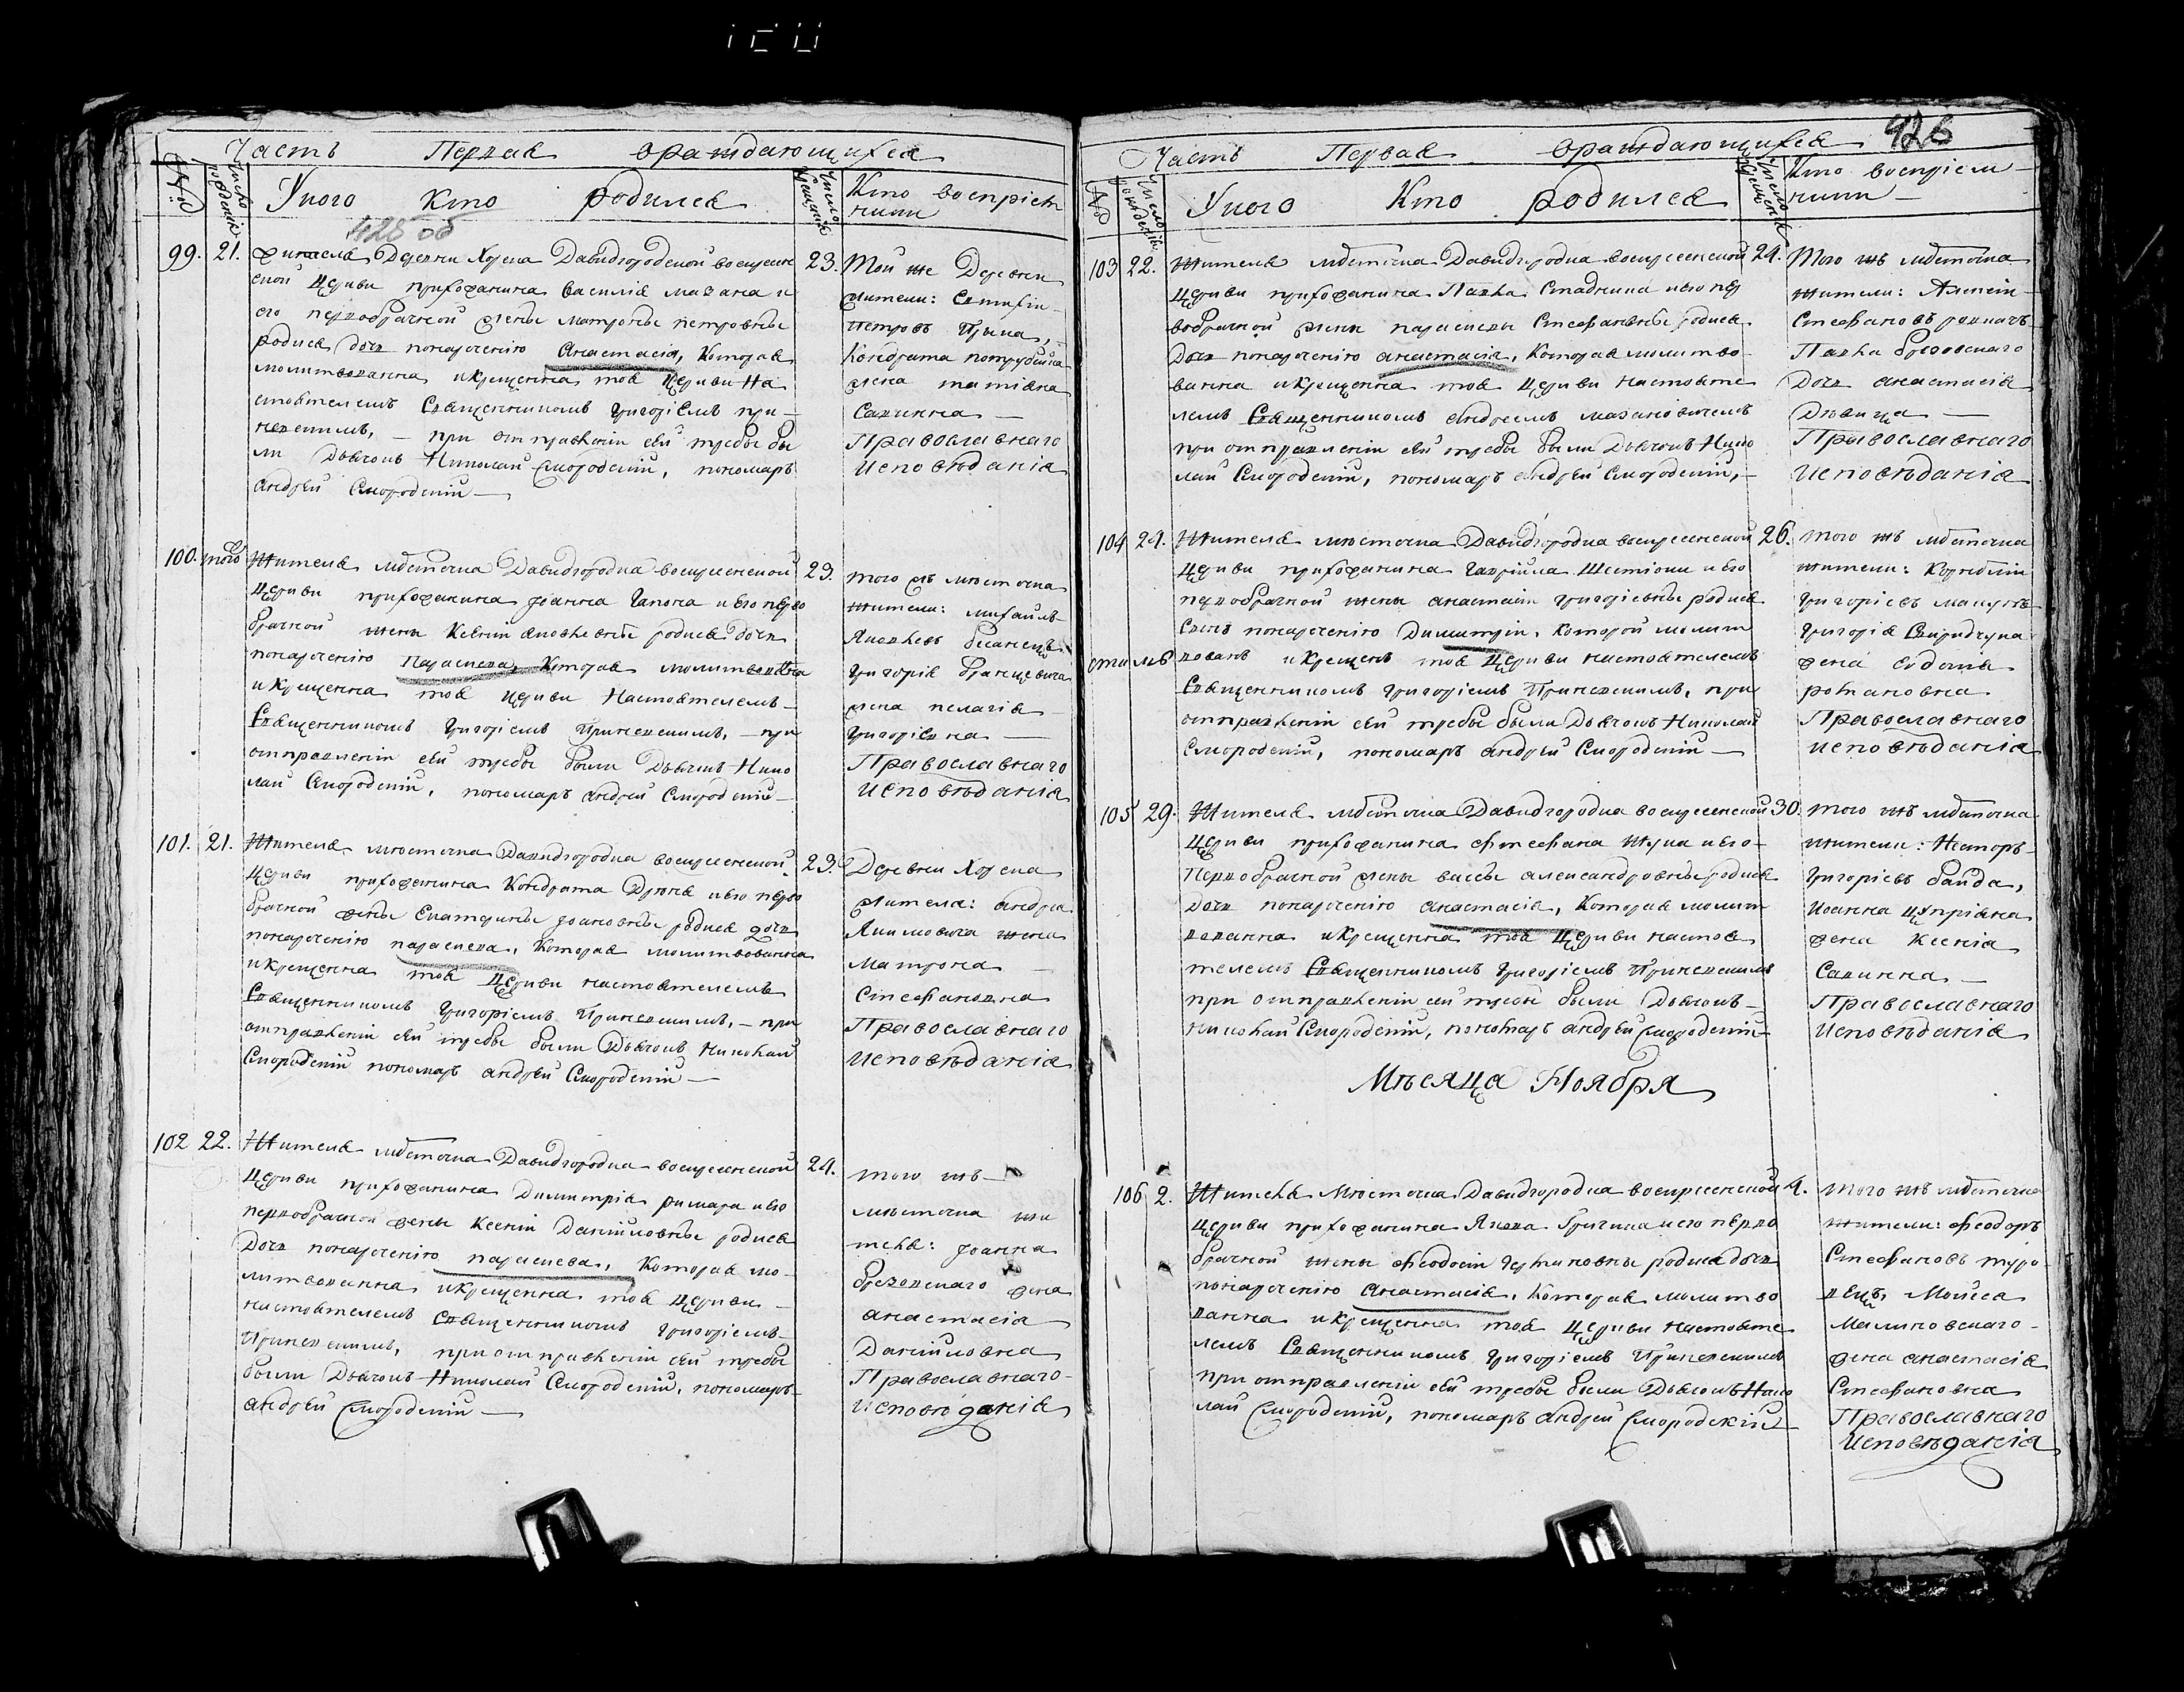 426
Часть Первая ораждающихся
№
Число рожденія
Уного Кто родился
Число крещенія
Кто воспріем
ники
425 об
99. 21. Жителя Деревни Хорска Давидгородской воскресен
ской Церкви прихожанина Василія мазана и
его первобрачной жены матроны петровны
родися дочь понареченію Анастасія, Которая
молитвованна икрещенна тоя Церкви На
стоятелемъ Священникомъ Григоріемъ при-
 — при отправленіи сей требы бы
ли Дьячокъ Николай Смородскій, пономаръ
андрей Смородскій —
23. Той же Деревни
жители:
петровъ
Кондрата
жена татіана
Савична —
Православнаго
Исповѣданія
100. того Жителя мѣстечка Давидгородка воскресенской
Церкви прихожанина Іоанна Гапона иего перво
брачной жены Ксеніи яковлевны родися дочь
понареченію Параскева, Которая молитвованна
икрещенна тоя церкви Настоятелемъ
Священникомъ Григоріемъ — при
отправленіи сей требы были Дьячокъ Нико
лай Смородскій, пономаръ андрей Смородскій —
23. того жъ мѣстечка
жители: михаилъ
Яковлевъ
Григорія
жена пелагія
Григоріевна —
Православнаго
Исповѣданія
101. 21. Жителя мѣстечка Давидгородка воскресенской
Церкви прихожанина Кондрата иего перво
брачной жены Екатерины Іоановны родися дочь
понареченію параскева, Которая молитвованна
икрещенна тоя Церкви настоятелемъ
Священникомъ Григоріемъ — при
отправленіи сей требы были Дьячокъ николай
Смородскій пономаръ андрей Смородскій —
23. Деревни Хорска
жителя: андрея
жена
Матрона
Стефановна
Православнаго
Исповѣданія
102 22. Жителя мѣстечка Давидгородка воскресенской
Церкви прихожанина Димитрія римара иего
первобрачной жены Ксеніи Даніиловны родися
дочь понареченію параскева, Которая мо-
литвованна икрещенна тоя Церкви
настоятелемъ Священникомъ Григоріемъ
при отправленіи сей требы
были Дьячокъ Николай Смородскій, пономаръ
андрей Смородскій —
24. того жъ
мѣстечка жи
теля: Іоанна
жена
анастасія
Даніиловна
Православнаго
Исповѣданія
Часть Первая ораждающихся
№
Число рожденія
Уного Кто родился
Число крещенія
Кто воспріем-
ники —
103 22. Жителя мѣстечка Давидгородка воскресенской
Церкви прихожанина Павла Стадника иего пер
вобрачной жены параскевы Стефановны родися
дочь понареченію анастасія, Которая молитво-
ванна икрещенна тоя Церкви настояте
лемъ Священникомъ андреемъ мазановичемъ
при отправленіи сей требы были Дьячокъ Нико
лай Смородскій, пономаръ андрей Смородскій, —
24. Того жъ мѣстечка
жители: Алексій
Стефановъ
Павла
дочь анастасія
Дѣвица —
Православнаго
Исповѣданія
104 24. Жителя мѣстечка Давидгородка воскресенской
Церкви прихожанина Гавріила иего
первобрачной жены анастасіи григоріевны родися
Сынъ понареченію Димитрій, которой молит
вованъ икрещенъ тоя Церкви настоятелемъ
Священникомъ григоріемъ при
отправленіи сей требы были Дьячокъ Николай
Смородскій, пономаръ андрей Смородскій —
26. того жъ мѣстечка
жители: Корнилій
Григоріевъ
Григорія
жена
романовна
Православнаго
исповѣданія
105 29. Жителя мѣстечка Давидгородка воскресенской
Церкви прихожанина стефана иего
Первобрачной жены вассы александровны родися
дочь понареченію анастасія, Которая молит
вованна икрещенна тоя Церкви настоя
телемъ Священникомъ Григоріемъ
при отправленіи сей требы были Дьячокъ
николай Смородскій, пономаръ андрей Смородскій
30. того жъ мѣстечка
жители: Несторъ
Григоріевъ байда,
Иоанна
жена Ксенія
Савична —
Православнаго
Исповѣданія
Мѣсяца Ноября
106 2. Жителя Мѣстечка Давидгородка воскресенской
Церкви прихожанина Якова иего перво
брачной жены Феодосіи родися дочь
понареченію Анастасія, Которая молитво
ванна икрещенна тоя Церкви настояте
лемъ Священникомъ Григоріемъ
при отправленіи сей требы были Дьячокъ Нико
лай Смородскій, пономаръ андрей Смородскій
4. того жъ мѣстечка
жители: Феодоръ
Стефановъ туро
вецъ, Моисея
Малиновскаго
жена анастасія
Стефановна
Православнаго
Исповѣданія